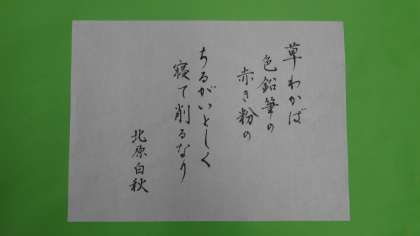 草わかば
色鉛筆の
赤き粉の
ちるがいとしく
寝て削るなり
北原白秋